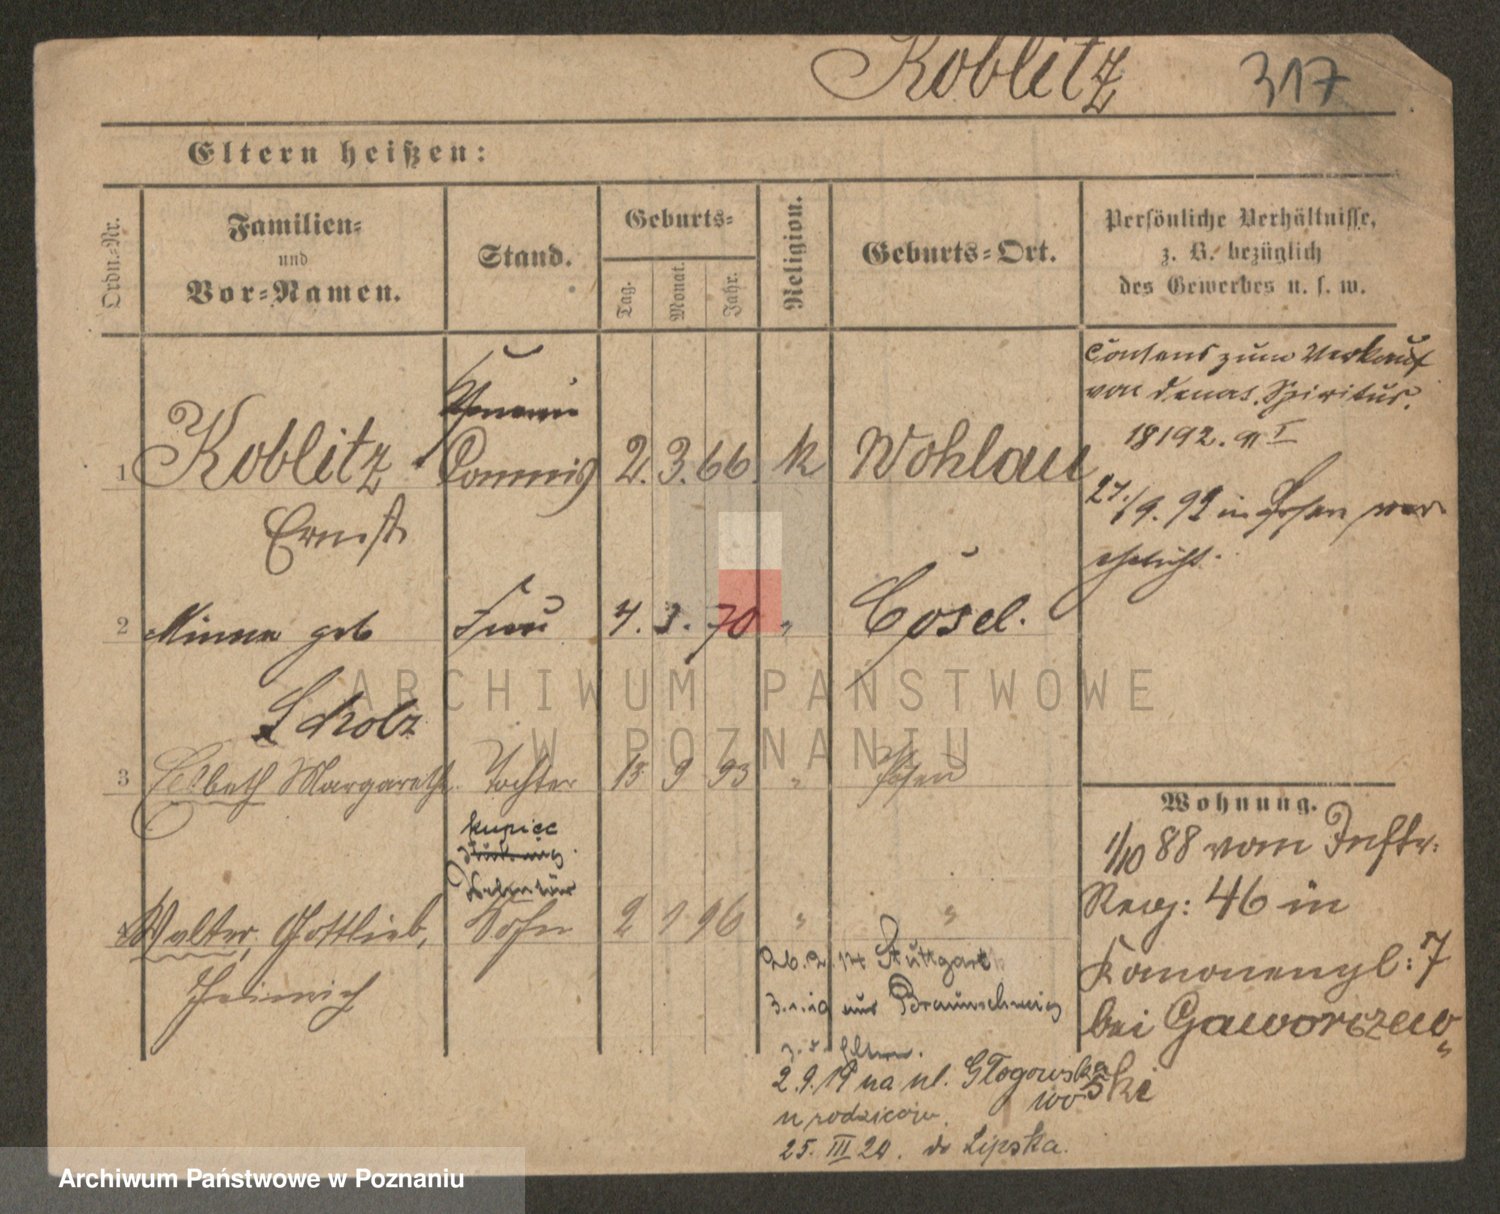 Koblitz 317
Eltern heißen:
Ordn.-Nr.
Familien-
und
Vor-Namen.
Stand.
Geburts-
Tag.
Monat.
Jahr.
Religion.
Geburts-Ort.
Persönliche Verhältnisse,
z. B. bezüglich
des Gewerbes u. s. w.
Consens zum Verkauf
von denat. Spiritus.
18192. 91 I
1 Koblitz Commis 2. 3. 66. k Wohlau
Ernst
27./9. 92 in Posen ver-
ehelicht.
2 Minna geb Frau 4. 3. 70 " Cosel.
Scholz
3 Elsbeth Margarethe. Tochter 15 9 93 " Posen
kupiec
4 Walter, Gottlieb, Sohn 2 1 96 " "
Heinrich
Wohnung.
1/10 88 vom Inftr:
Reg: 46 in
Kanonenpl: 7
bei Gaworzew„
ski
26.2. 14 Stuttgart
3.1.19 aus Braunschweig
z. d. Eltern.
2.9.19 na ul. Głogowska
100
u rodziców.
25. III 20. do Lipska.
ARCHIWUM PAŃSTWOWE
W POZNANIU
Archiwum Państwowe w Poznaniu